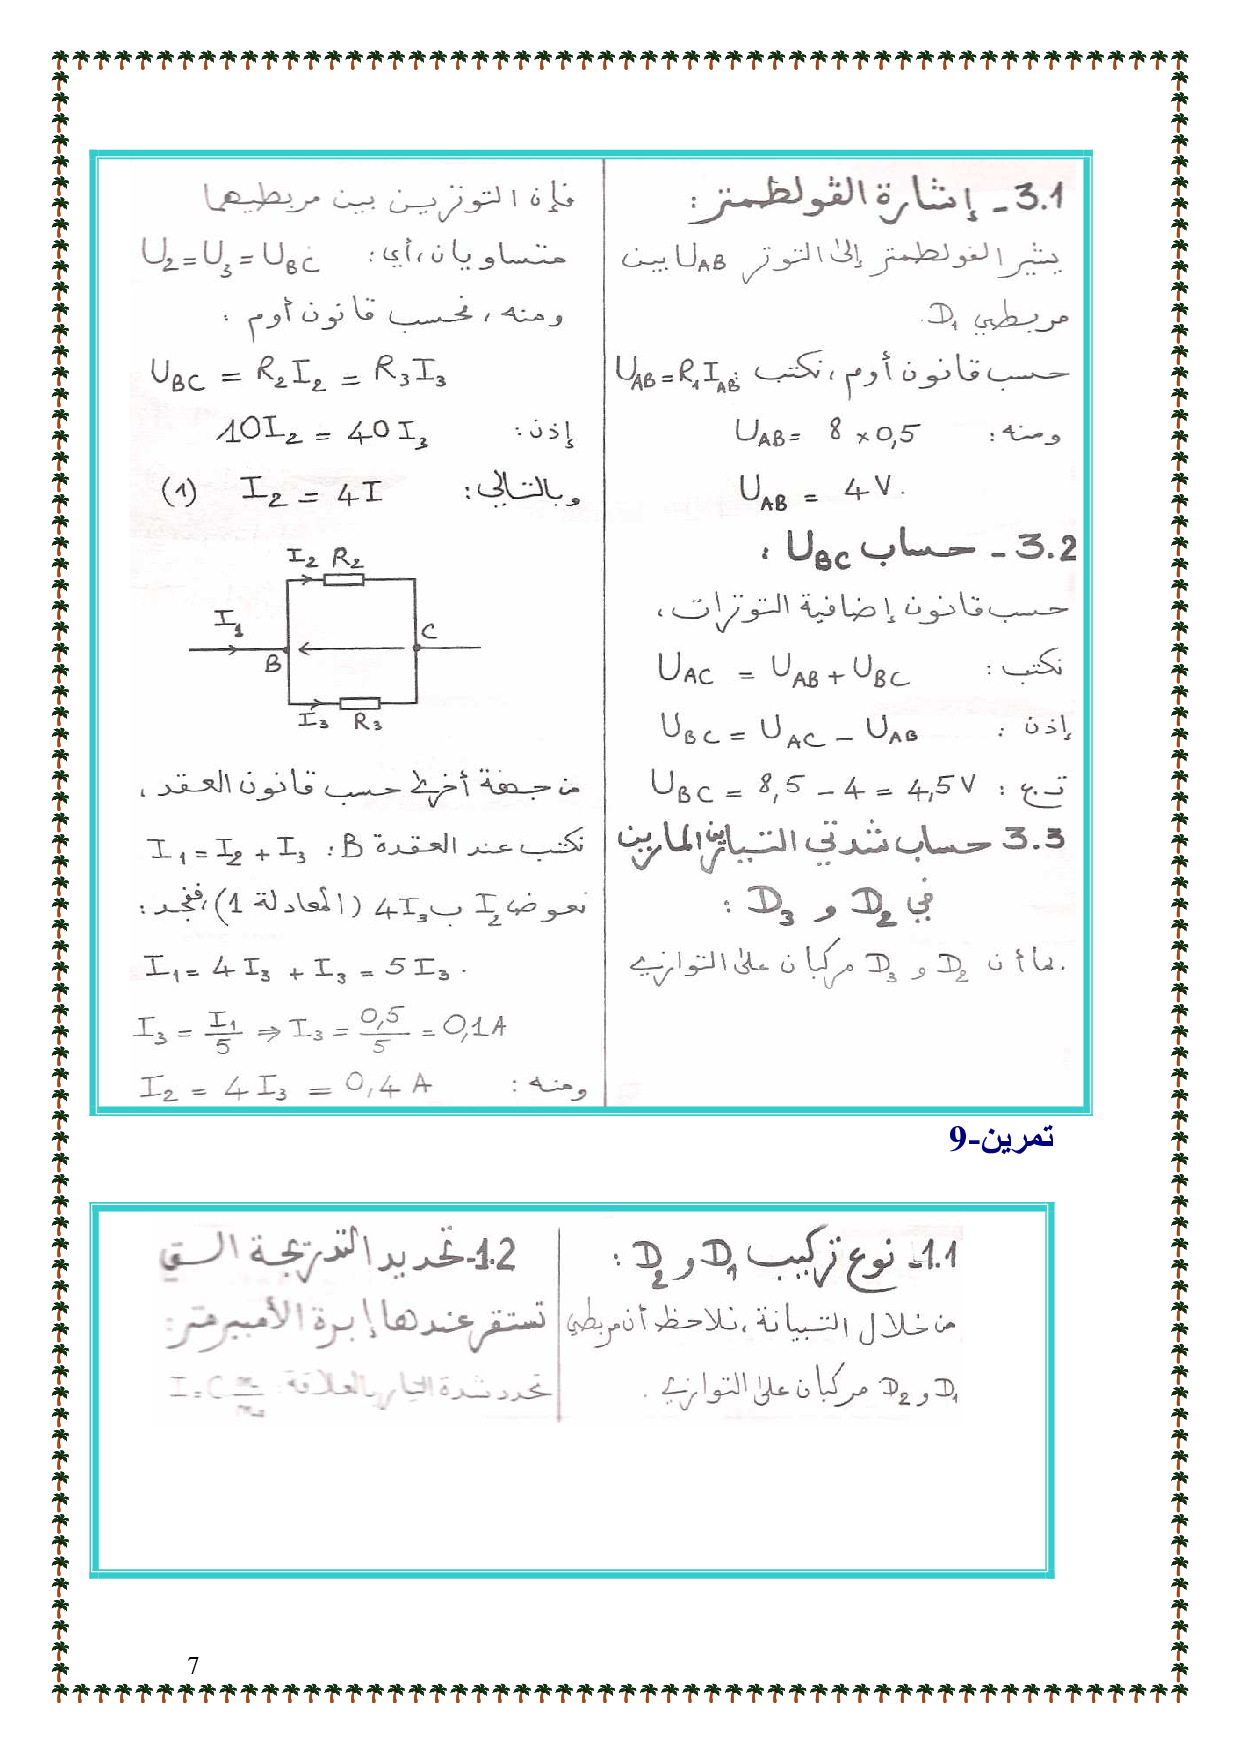 3.1 - إشارة الڤولطمتر :
يشير الڤولطمتر إلى التوتر UAB بين
مربطي D1.
حسب قانون أوم، نكتب UAB = R1 IAB
ومنه : UAB = 8 × 0,5
UAB = 4 V.
3.2 - حساب UBC :
حسب قانون إضافية التوترات،
نكتب : UAC = UAB + UBC
إذن : UBC = UAC - UAB
ت.ع : UBC = 8,5 - 4 = 4,5 V
3.3 حساب شدتي التيارين المارين
في D2 و D3 :
بما أن D2 و D3 مركبان على التوازي
فإن التوترين بين مربطيهما
متساويان، أي : U2 = U3 = UBC
ومنه، فحسب قانون أوم :
UBC = R2 I2 = R3 I3
إذن : 10 I2 = 40 I3
وبالتالي : I2 = 4I (1)
I2 R2
I1
C
B
I3 R3
من جهة أخرى حسب قانون العقد،
نكتب عند العقدة B : I1 = I2 + I3
نعوض I2 ب 4I3 (المعادلة 1)، فنجد :
I1 = 4 I3 + I3 = 5 I3.
I3 = I1/5 ⇒ I3 = 0,5/5 = 0,1 A
ومنه : I2 = 4 I3 = 0,4 A
تمرين-9
1.1- نوع تركيب D1 و D2 :
من خلال التبيانة، نلاحظ أن مربطي
D1 و D2 مركبان على التوازي.
1.2- تحديد التدريجة التي
تستقر عندها إبرة الأمبيرمتر :
تحدد شدة التيار بالعلاقة : I = C
7